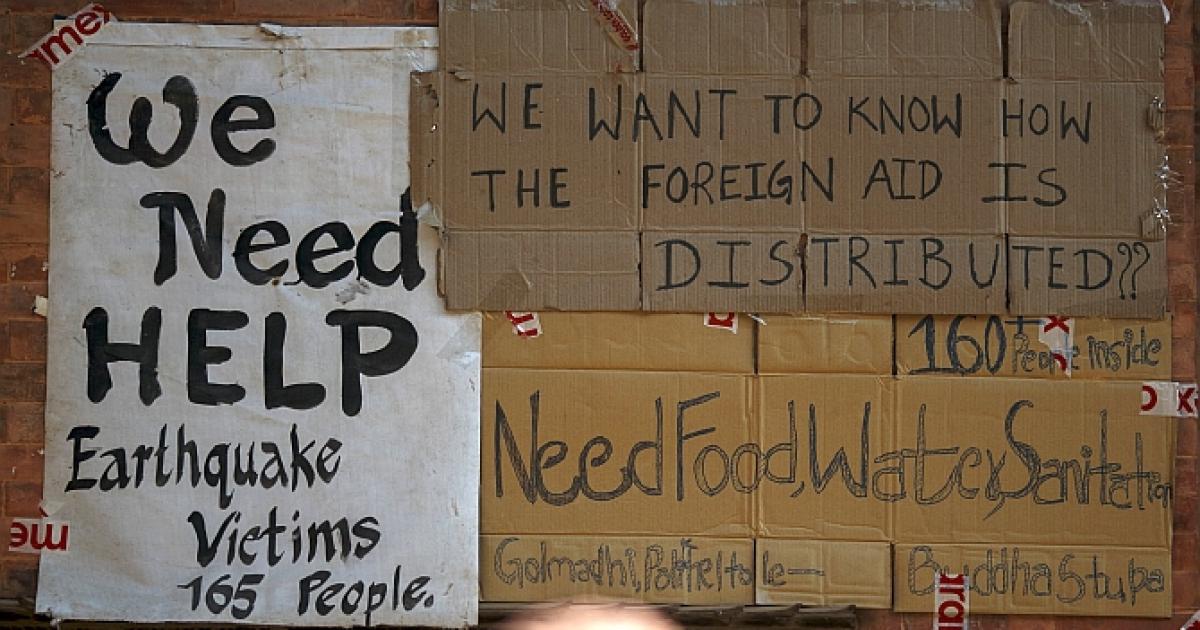 We
Need
HELP
Earthquake
Victims
165 People.
WE WANT TO KNOW HOW
THE FOREIGN AID IS
DISTRIBUTED??
160+ People inside
Need Food, Water, Sanitation
Golmadhi,
Buddha Stupa